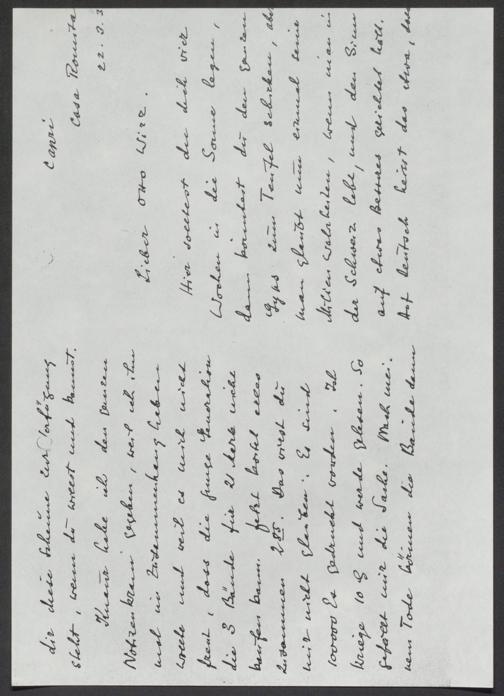 Capri
Casa Romita
22.3.3
Lieber Otto Wirz.
Hier solltest du dich vier
Wochen in die Sonne legen,
dann könntest du den ganzen
Gyps zum Teufel schicken, aber
man glaubt nun einmal seine
Milieu Wahrheiten, wenn man in
der Schweiz lebt, und den Sinn
auf etwas Besseres gerichtet hält.
Auf deutsch heisst das etwa, dass
dir diese Scheune zur Verfügung
steht, wenn du willst und kannst.
Knaur habe ich den ganzen
gegeben, weil ich ihn
mal im Zusammenhang haben
wollte und weil es mich nicht
freut, dass die junge Generation
die 3 Bände für 21 Mark nicht
kaufen kann. Jetzt kostet alles
zusammen 2.85. Das wirst du
mir nicht glauben. Es sind
100000 Ex gedruckt worden. Ich
kriege 10 und werde gelesen. So
gefällt mir die Sache. Nach mei-
nem Tode können die Bände dann